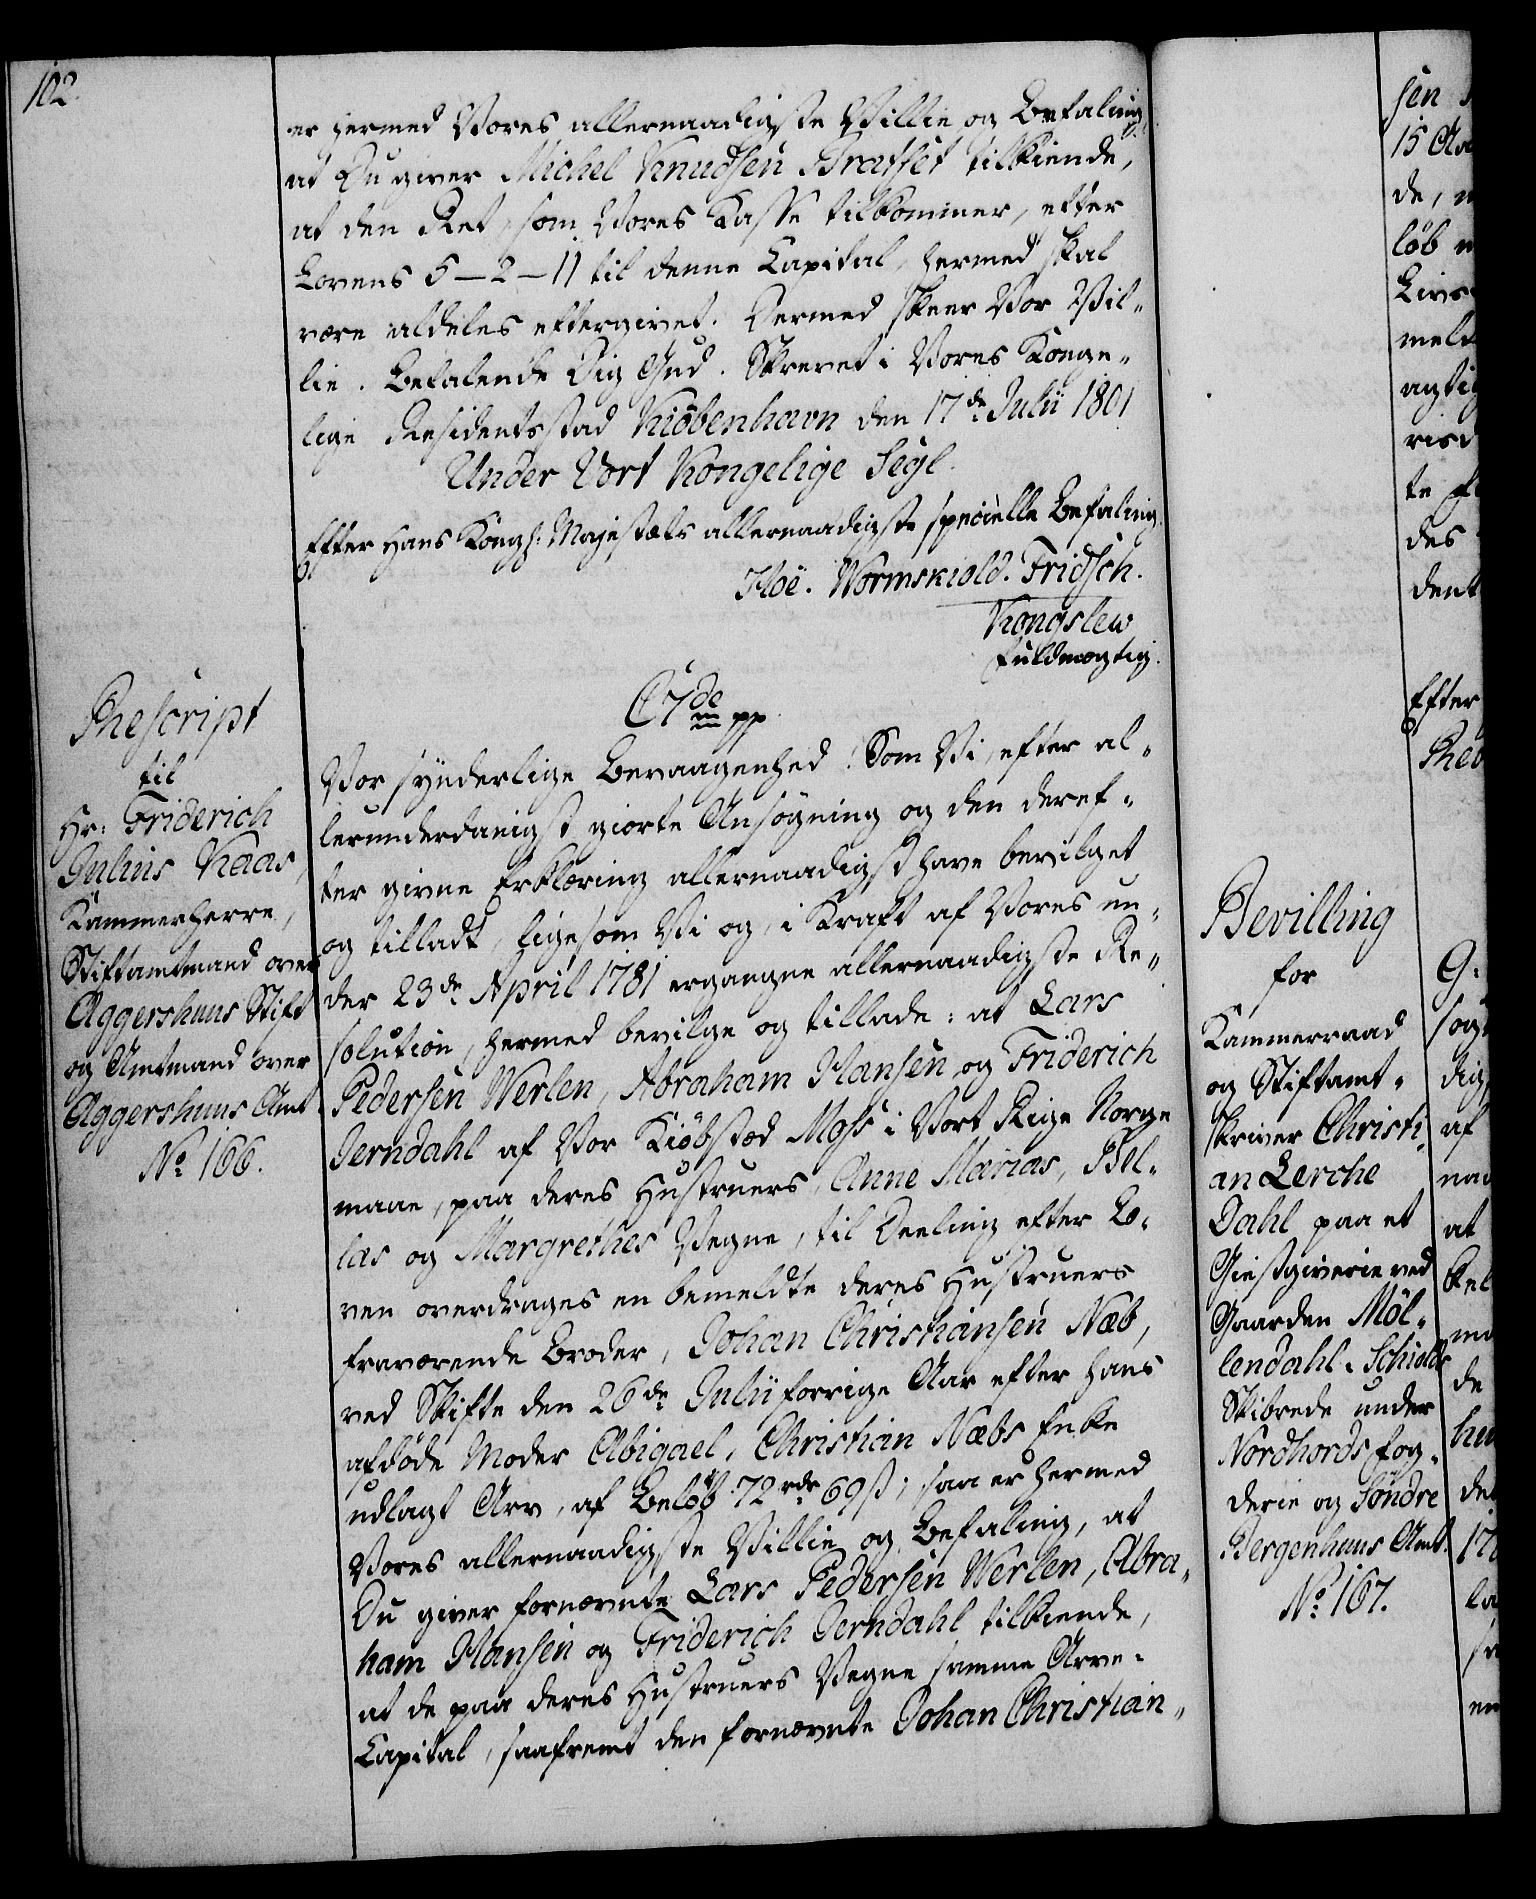 102.
er hermed Vores allernaadigste Villie og Befaling,
at Du giver Michel Knudsen Bratset tilkiende,
at den Ret, som Vores Kasse tilkommer, efter
Lovens 5-2-11 til denne Capital, hermed skal
være aldeles eftergivet. Dermed skeer Vor Vil„
lie. Befalende Dig Gud. Skrevet i Vores Konge„
lige Residentsstad Kiöbenhavn den 17de Julii 1801
Under Vort Kongelige Segl.
Efter Hans Kongl: Majestæts allernaadigste specielle Befaling.
Hoë. Wormskiold. Fridsch.
Kongslew
fuldmægtig.
Rescript
til
Hr: Friderich
Julius Kaas,
Kammerherre,
Stiftamtmand over
Aggershuus Stift
og Amtmand over
Aggershuus Amt.
No 166.
C7de pp
Vor synderlige Bevaagenhed! Som Vi, efter al„
lerunderdanigst giorte Ansögning og den deref„
ter givne Erklæring allernaadigst have bevilget
og tilladt, ligesom Vi og, i Kraft af Vores un„
der 23de April 1781 ergangne allernaadigste Re„
solution, hermed bevilge og tillade: at Lars
Pedersen Werlen, Abraham Hansen og Friderich
Jerndahl af Vor Kiöbstæd Moss i Vort Rige Norge
maae, paa deres Hustruers, Anne Marias, Bel„
las og Margrethes Vegne, til Deeling efter Lo„
ven overdrages en bemeldte deres Hustruers
fraværende Broder, Johan Christiansen Næb,
ved Skifte den 26de Julii forrige Aar efter hans
afdöde Moder Abigael, Christian Næbs Enke
udlagt Arv, af Belöb 72 rdr 69 ß; saa er hermed
Vores allernaadigste Villie og Befaling, at
Du giver fornævnte Lars Pedersen Werlen, Abra„
ham Hansen og Friderich Jerndahl tilkiende,
at de paa deres Hustruers Vegne samme Arve„
Capital, saafremt den fornævnte Johan Christian„
Bevilling
for
Kammerraad
og Stiftamt„
skriver Christi„
an Lerche
Dahl paa et
Giestgiverie ved
Gaarden Möl„
lendahl i Schiolds
Skibrede under
Nordhords Fog„
derie og Söndre
Bergenhuus Amt.
No 167.
sen
15
de,
löb
te
des
Efter
G:
af
at
de